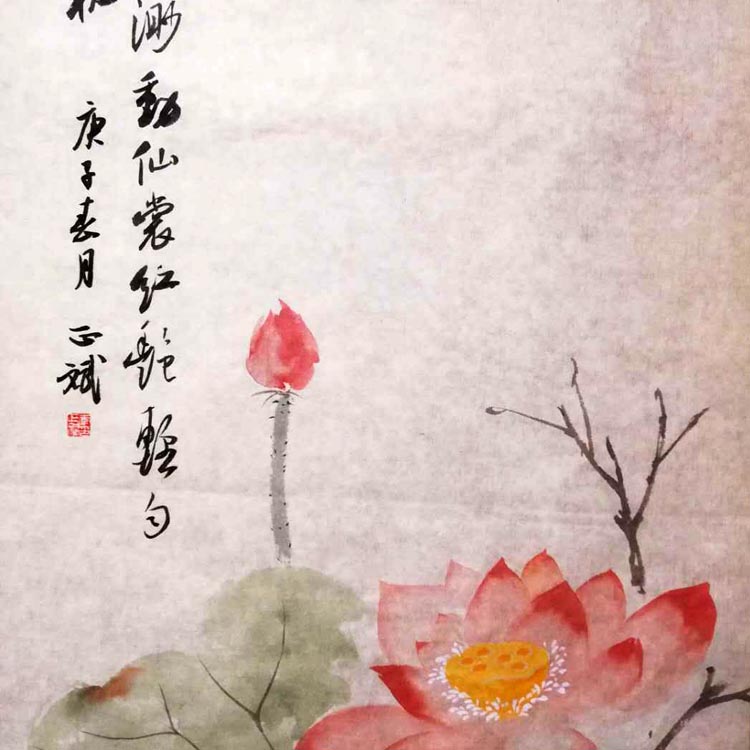 渺動仙裳红艷輕匀
庚子春月 正斌